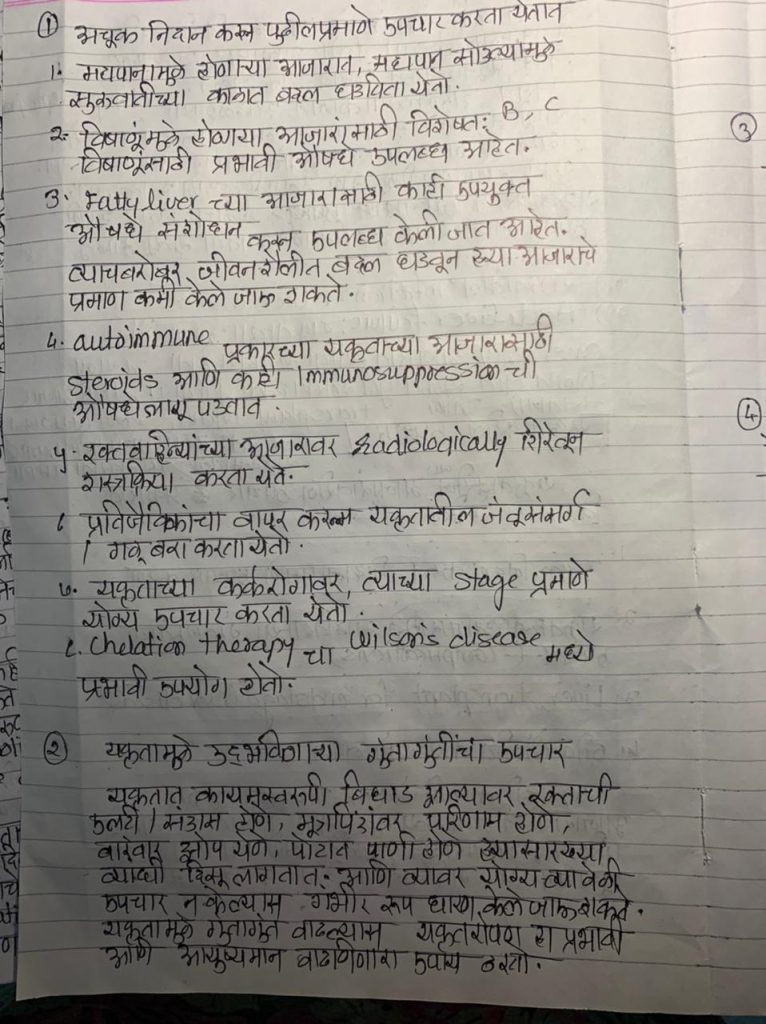 ① अचूक निदान करून पुढीलप्रमाणे उपचार करता येतात
1. मद्यपानामुळे होणाऱ्या आजारात, मद्यपान सोडल्यामुळे
सुरुवातीच्या काळात बदल घडविता येतो.
2. विषाणूंमुळे होणाऱ्या आजारांसाठी विशेषतः B, C
विषाणूंसाठी प्रभावी औषधे उपलब्ध आहेत.
3. Fatty liver च्या आजारासाठी काही उपयुक्त
औषधे संशोधन करून उपलब्ध केली जात आहेत.
त्याचबरोबर जीवनशैलीत बदल घडवून ह्या आजाराचे
प्रमाण कमी केले जाऊ शकते.
4. autoimmune प्रकारच्या यकृताच्या आजारासाठी
steroids आणि काही Immunosuppression ची
औषधे लागू पडतात.
५. रक्तवाहिन्यांच्या आजारावर Radiologically
शस्त्रक्रिया करता येते.
६ प्रतिजैविकांचा वापर करून यकृतातील जंतूसंसर्ग
/ गळू बरा करता येतो.
७. यकृताच्या कर्करोगावर, त्याच्या stage प्रमाणे
योग्य उपचार करता येतो.
८. Chelation therapy चा Wilson's disease मध्ये
प्रभावी उपयोग होतो.
② यकृतामुळे उद्भवणाऱ्या गुंतागुंतींचा उपचार
यकृतात कायमस्वरूपी बिघाड झाल्यावर रक्ताची
उलटी / संडास होणे, मूत्रपिंडांवर परिणाम होणे,
वारंवार झोप येणे, पोटात पाणी होणे ह्यासारख्या
व्याधी दिसू लागतात. आणि त्यावर योग्य त्या वेळी
उपचार न केल्यास गंभीर रूप धारण केले जाऊ शकते.
यकृतामुळे गुंतागुंत वाढल्यास यकृतरोपण हा प्रभावी
आणि आयुष्यमान वाढविणारा उपाय ठरतो.
③
④